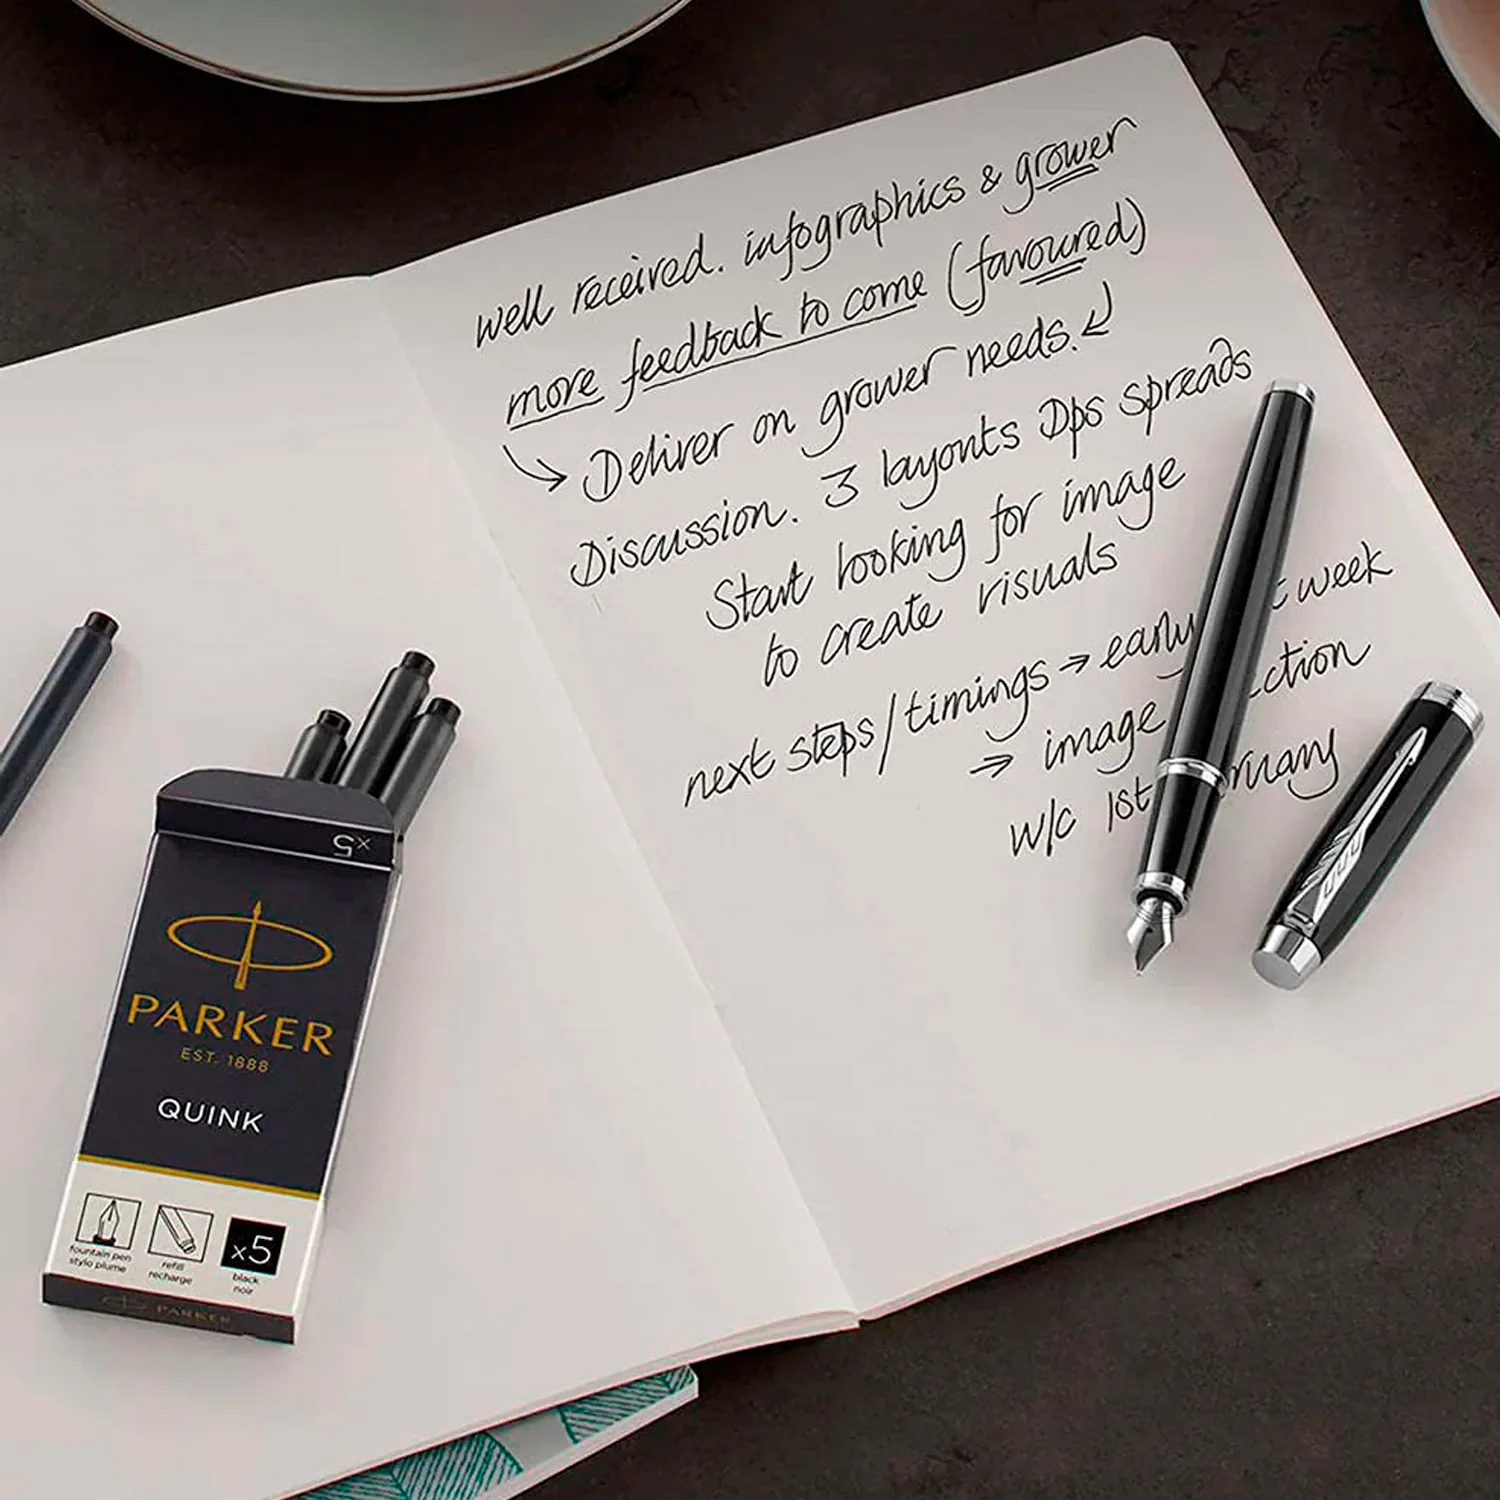 well received. infographics & grower
more feedback to come (favoured)
Deliver on grower needs.
Discussion. 3 layouts Dps spreads
Start looking for image
to create visuals
next steps / timings ⇒ early week
⇒ image
w/c 1st
x5
PARKER
EST. 1888
QUINK
fountain pen
stylo plume
refill
recharge
x5
black
noir
PARKER